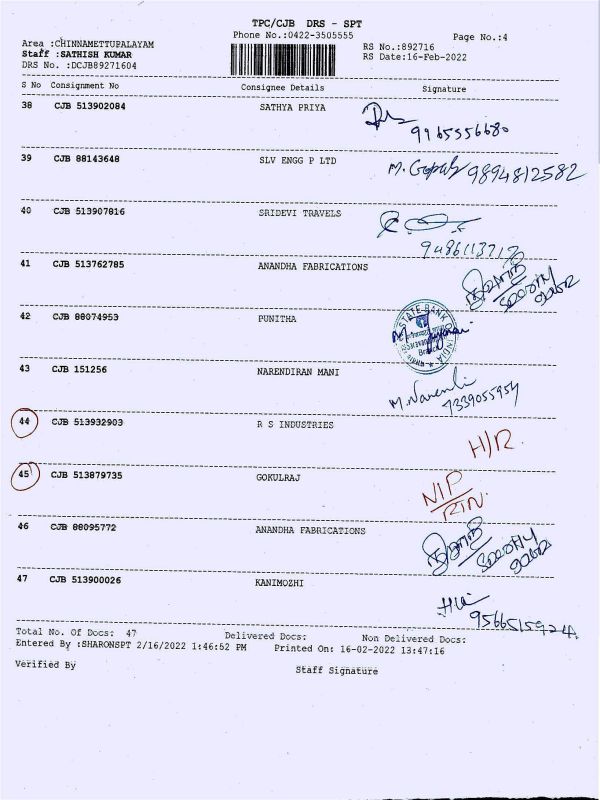 TPC/CJB DRS - SPT
Phone No.:0422-3505555
Page No.:4
Area :CHINNAMETTUPALAYAM
RS No.:892716
Staff :SATHISH KUMAR
RS Date:16-Feb-2022
DRS No. :DCJB89271604
S No Consignment No Consignee Details Signature
38 CJB 513902084 SATHYA PRIYA
9965556680
39 CJB 88143648 SLV ENGG P LTD
9894812582
40 CJB 513907816 SRIDEVI TRAVELS
41 CJB 513762785 ANANDHA FABRICATIONS
42 CJB 88074953 PUNITHA
STATE BANK INDIA
43 CJB 151256 NARENDIRAN MANI
7339055954
44 CJB 513932903 R S INDUSTRIES
H/R.
45 CJB 513879735 GOKULRAJ
46 CJB 88095772 ANANDHA FABRICATIONS
47 CJB 513900026 KANIMOZHI
Total No. Of Docs: 47 Delivered Docs: Non Delivered Docs:
Entered By :SHARONSPT 2/16/2022 1:46:52 PM Printed On: 16-02-2022 13:47:16
Verified By Staff Signature